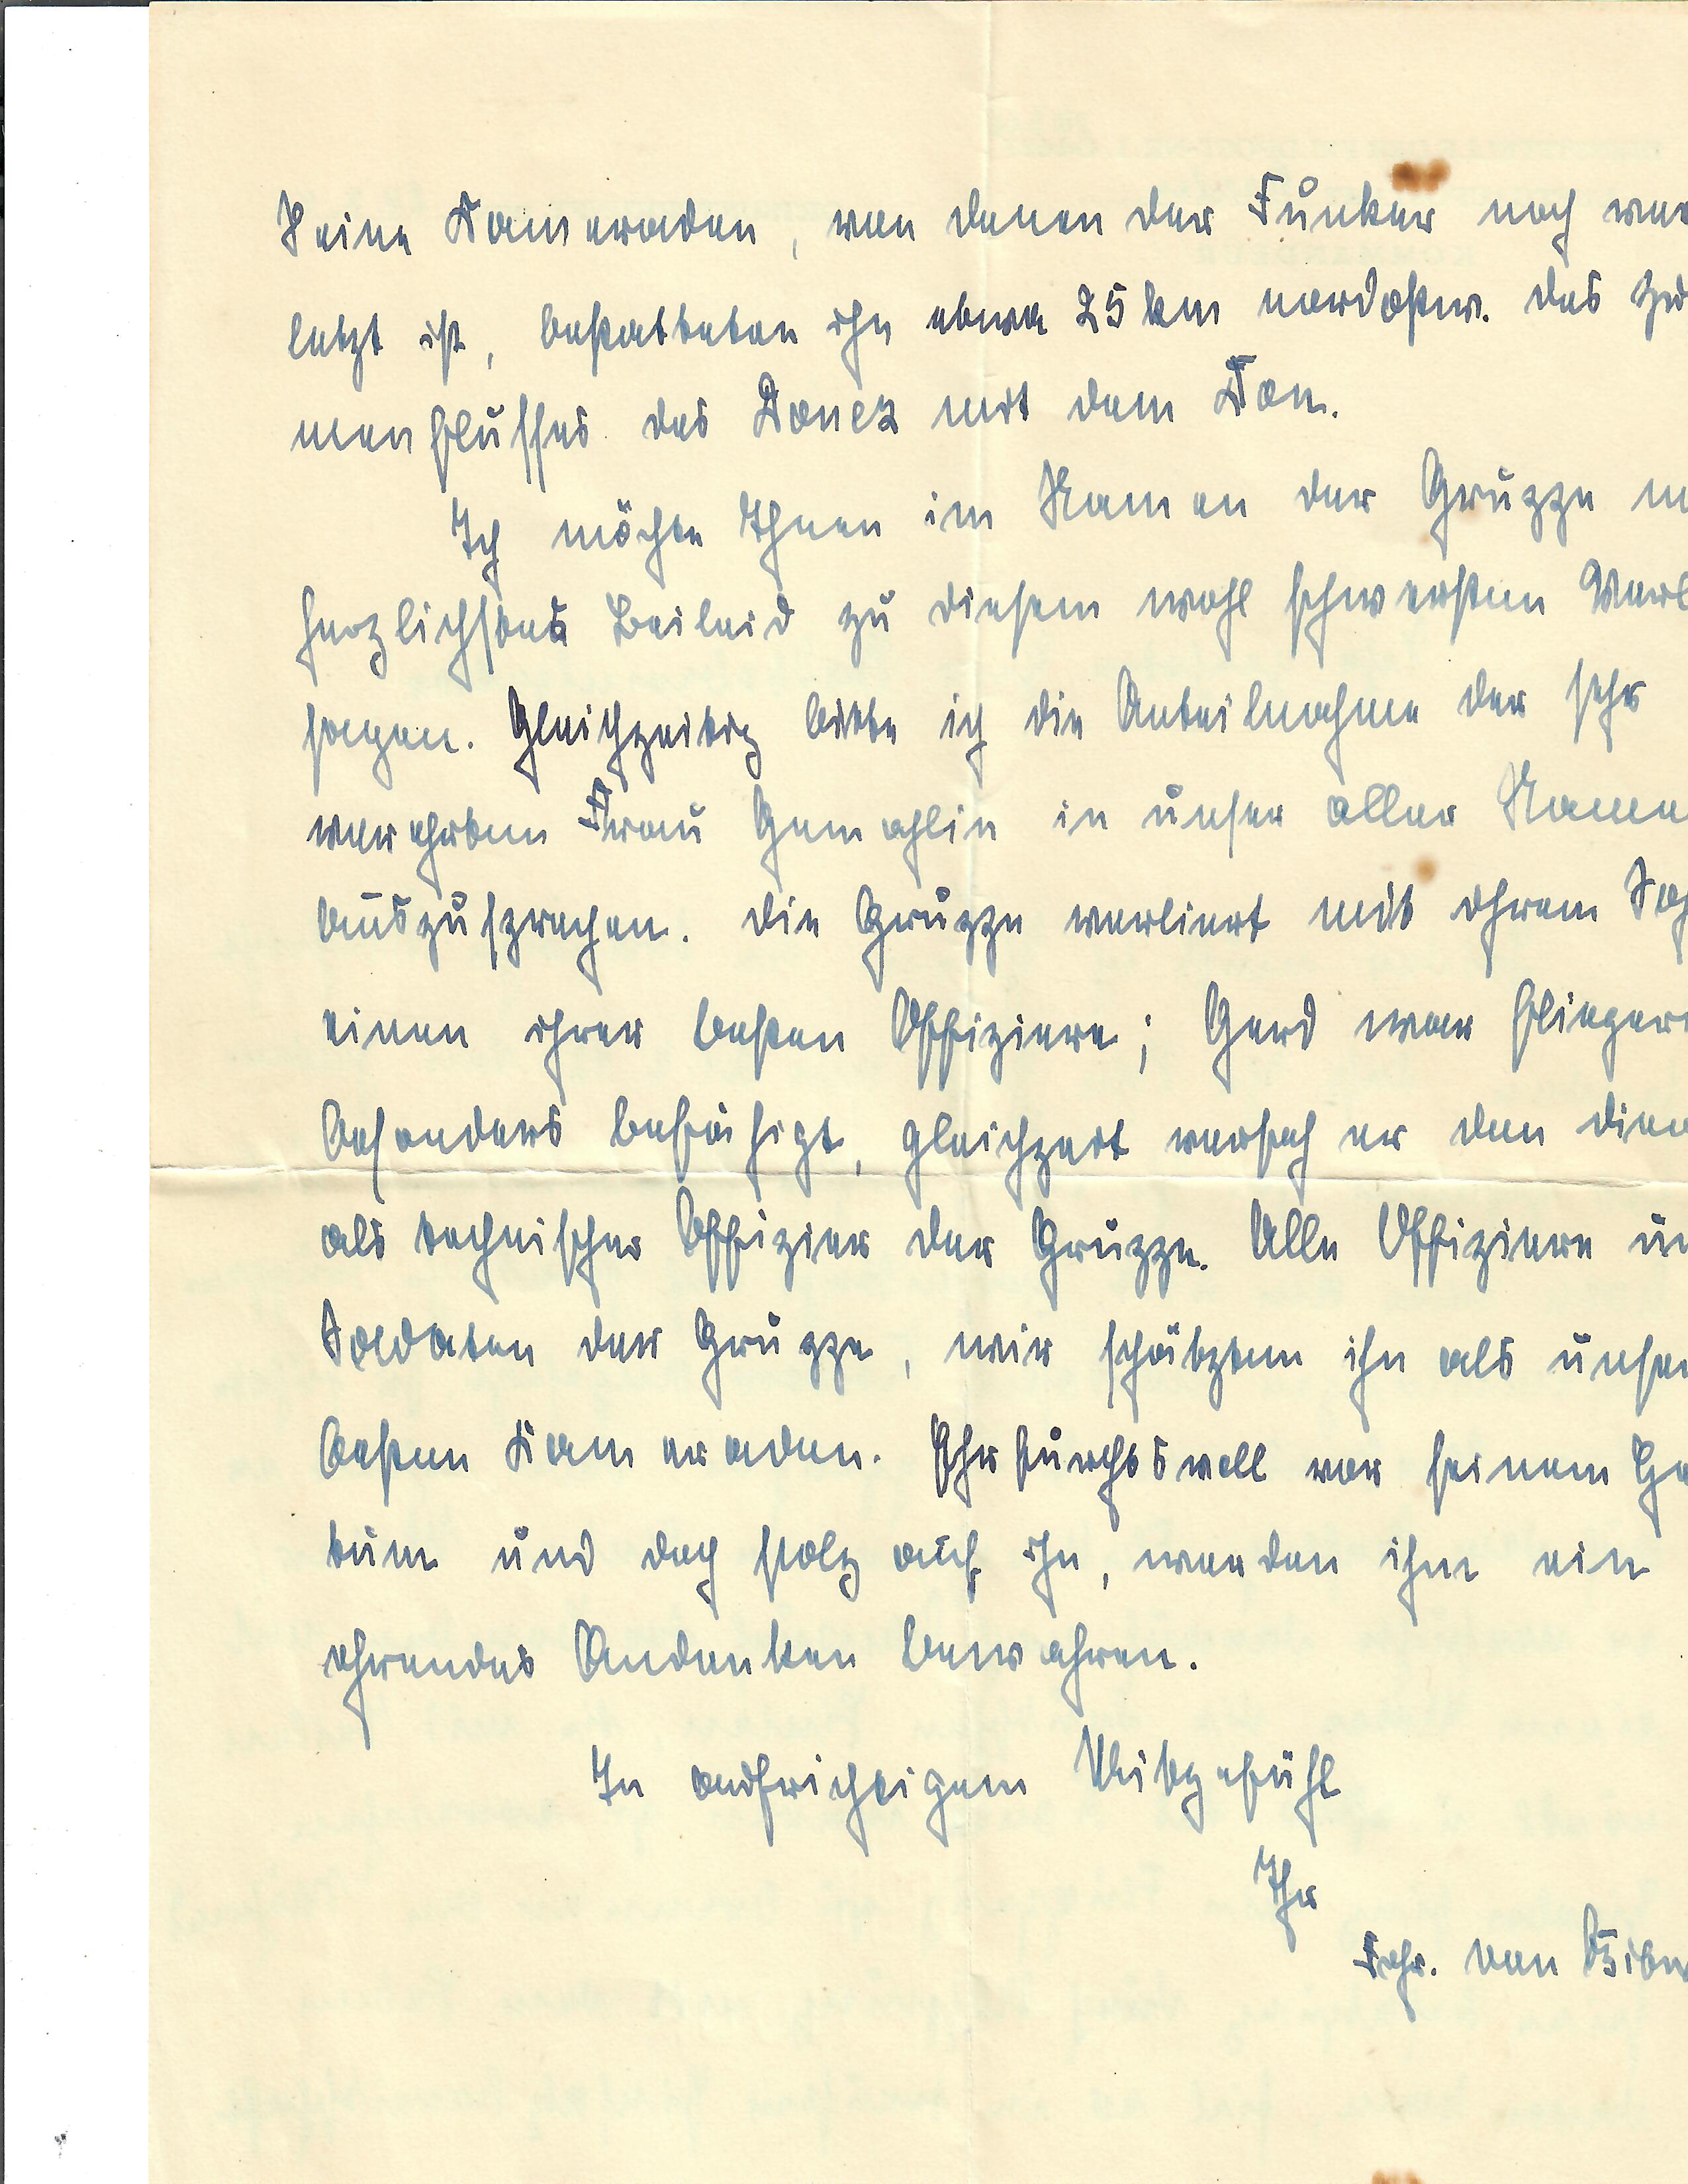 Seine Kameraden, von denen der Funker noch ver
letzt ist, bestatteten ihn etwa 25 km nordostw. des Zu
menflusses des Donez mit dem Don.
Ich möchte Ihnen im Namen der Gruppe m
herzlichstes Beileid zu diesem wohl schwersten Verl
sagen. Gleichzeitig bitte ich die Anteilnahme der sehr
verehrten Frau Gemahlin in unser aller Name
auszusprechen. Die Gruppe verliert mit ihrem Soh
einen ihrer besten Offiziere; Gerd war flieger
besonders befähigt, gleichzeit versah er den Dien
als technischer Offizier der Gruppe. Alle Offiziere un
Soldaten der Gruppe, wir schätzten ihn als unser
besten Kameraden. Ehrfurchtsvoll vor seinem He
tum und doch stolz auf ihn, werden ihm ein
ehrendes Andenken bewahren.
In aufrichtigem Mitgefühl
Ihr
Frhr. von